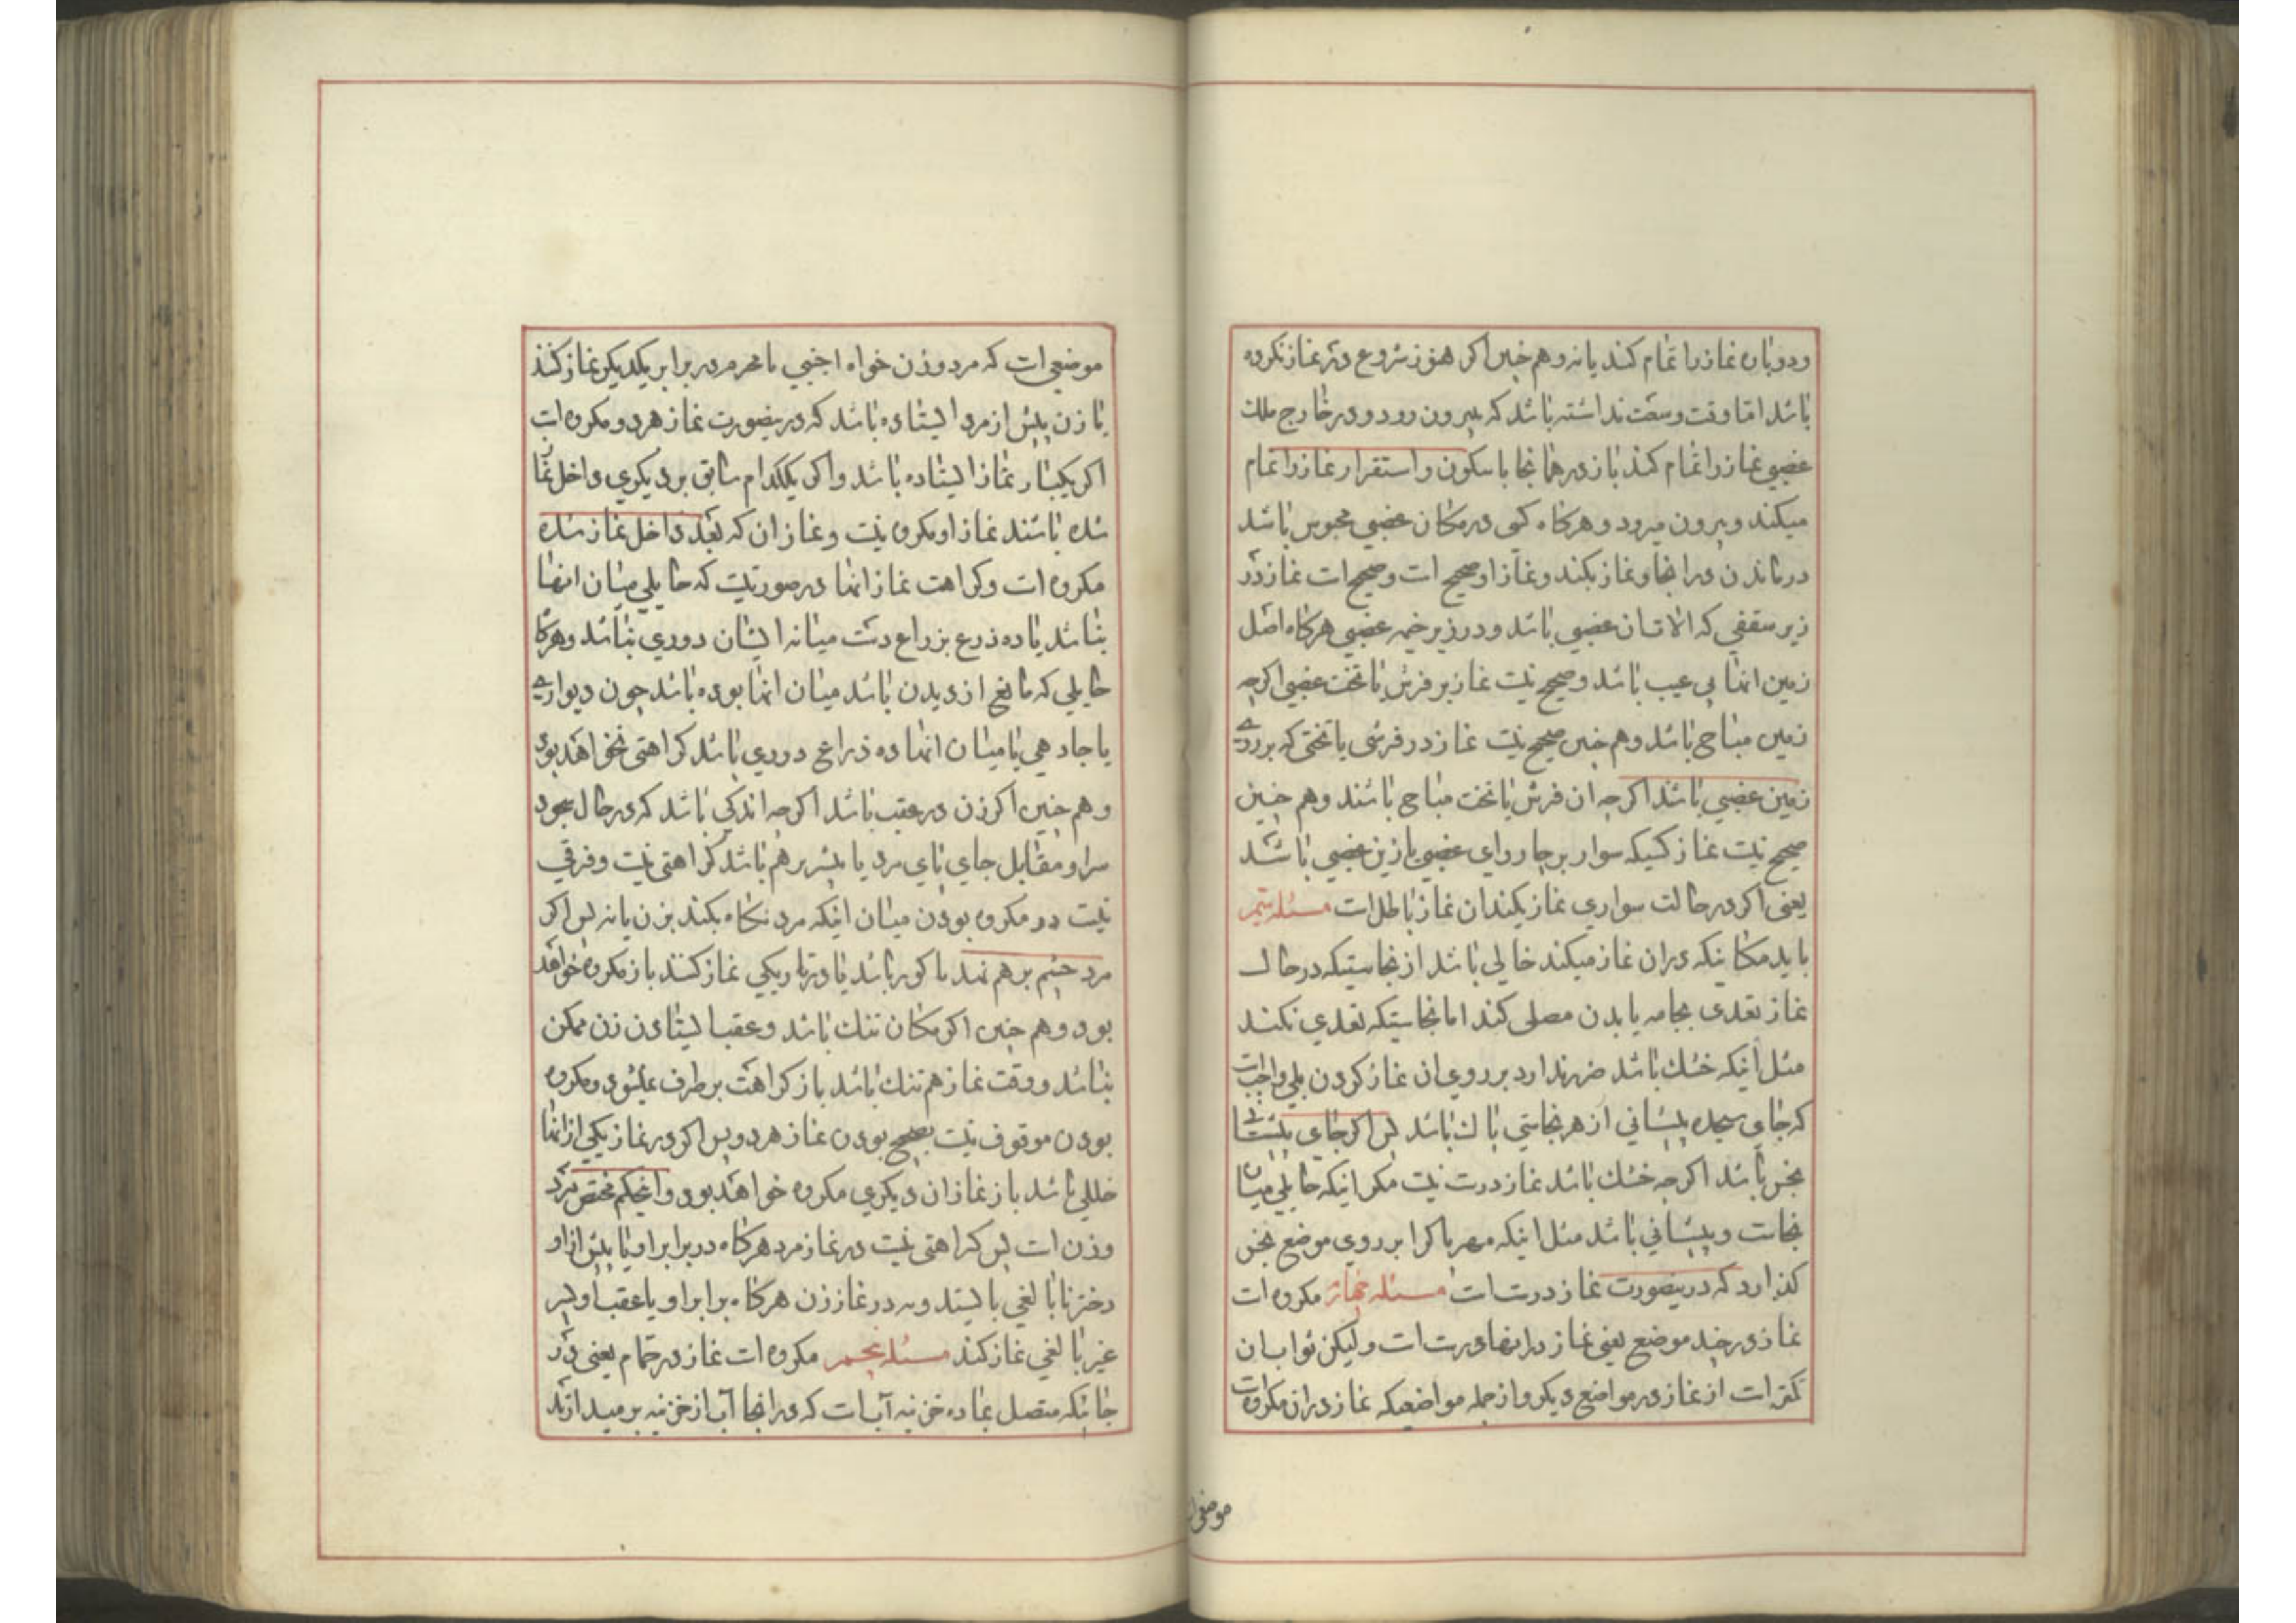 ودوباره نماز را تمام کند یا نه وهم چنین اکر هنوز شروع در نماز نکرده
باشد امّا وقت وسعت نداشته باشد که بیرون رود و در خارج ملک
غصبی نماز را تمام کند باز در همانجا با سکون واستقرار نماز را تمام
میکند وبیرون میرود وهرکاه کسی در مکان غصبی محبوس باشد
در ماندن در انجا ونماز بکند ونماز او صحیح است وصحیح است نماز در
زیر سقفی که الات ان غصبی باشد ودر زیر خیمه غصبی هرکاه اصل
زمین انها بی عیب باشد وصحیح نیست نماز بر فرش یا تخت غصبی اکرچه
زمین مباح باشد وهم چنین صحیح نیست نماز در فرشی یا تختی که بر روی
زمین غصبی باشد اکرچه ان فرش یا تخت مباح باشند وهم چنین
صحیح نیست نماز کسیکه سوار بر چاروای غصبی یا زین غصبی باشد
یعنی اکر در حالت سواری نماز بکند ان نماز باطل است مسئله
باید مکانیکه در ان نماز میکند خالی باشد از نجاستیکه در حال
نماز تعدی بجامه یا بدن مصلی کند اما نجاستیکه تعدی نکند
مثل اینکه خشک باشد ضرر ندارد بر روی ان نماز کردن بلی واجبست
که جای سجده پیشانی از هر نجاستی پاک باشد پس اکر جای پیشانی
نجس باشد اکرچه خشک باشد نماز درست نیست مکر اینکه حایلی میان
نجاست وپیشانی باشد مثل اینکه مهر پاکرا بر روی موضع نجس
کذارد که درینصورت نماز درست است مسئله چهارم مکروه است
نماز در چند موضع یعنی نماز در انها درست است ولیکن ثواب ان
کمتر است از نماز در مواضع دیکر واز جمله مواضعیکه نماز در ان مکروهست
موضعی است که مرد وزن خواه اجنبی یا محرم در برابر یکدیکر نماز کنند
یا زن پیش از مرد ایستاده باشد که درینصورت نماز هر دو مکروه است
اکر یکبار نماز ایستاده باشد واکر یککدام سابق بر دیکری داخل نماز
شده باشند نماز او مکروه نیست ونماز ان که بعد داخل نماز شده
مکروه است وکراهت نماز انها در صورتیست که حایلی میان انها
نباشد یا ده ذرع بزراع دست میانه ایشان دوری نباشد وهرکاه
حایلی که مانع از دیدن باشد میان انها بوده باشد چون دیواری
یا جادهی یا میان انها ده ذراع دوری باشد کراهتی نخواهد بود
وهم چنین اکر زن در عقب باشد اکرچه اندکی باشد که در حال سجود
سر او مقابل جای پای مرد یا پستر هم باشد کراهتی نیست وفرقی
نیست در مکروه بودن میان اینکه مرد نکاه بکند بزن یا نه پس اکر
مرد چشم بر هم نهد یا کور باشد یا در تاریکی نماز کنند باز مکروه خواهد
بود وهم چنین اکر مکان تنک باشد وعقب ایستادن زن ممکن
نباشد ووقت نماز هم تنک باشد باز کراهت بر طرف نمیشود ومکروه
بودن موقوف نیست بصحیح بودن نماز هر دو پس اکر در نماز یکی از انها
خللی باشد باز نماز ان دیکری مکروه خواهد بود واینحکم مختص بمرد
وزن است پس کراهتی نیست در نماز مرد هرکاه در برابر او یا پیش از او
دختر نا بالغی بایستد ونه در نماز زن هرکاه برابر او یا عقب او پسر
غیر بالغی نماز کند مسئله پنجم مکروه است نماز در حمّام یعنی در
جائیکه متصل بماده خزینه آبست که در انجا آب از خزینه بر میدارند